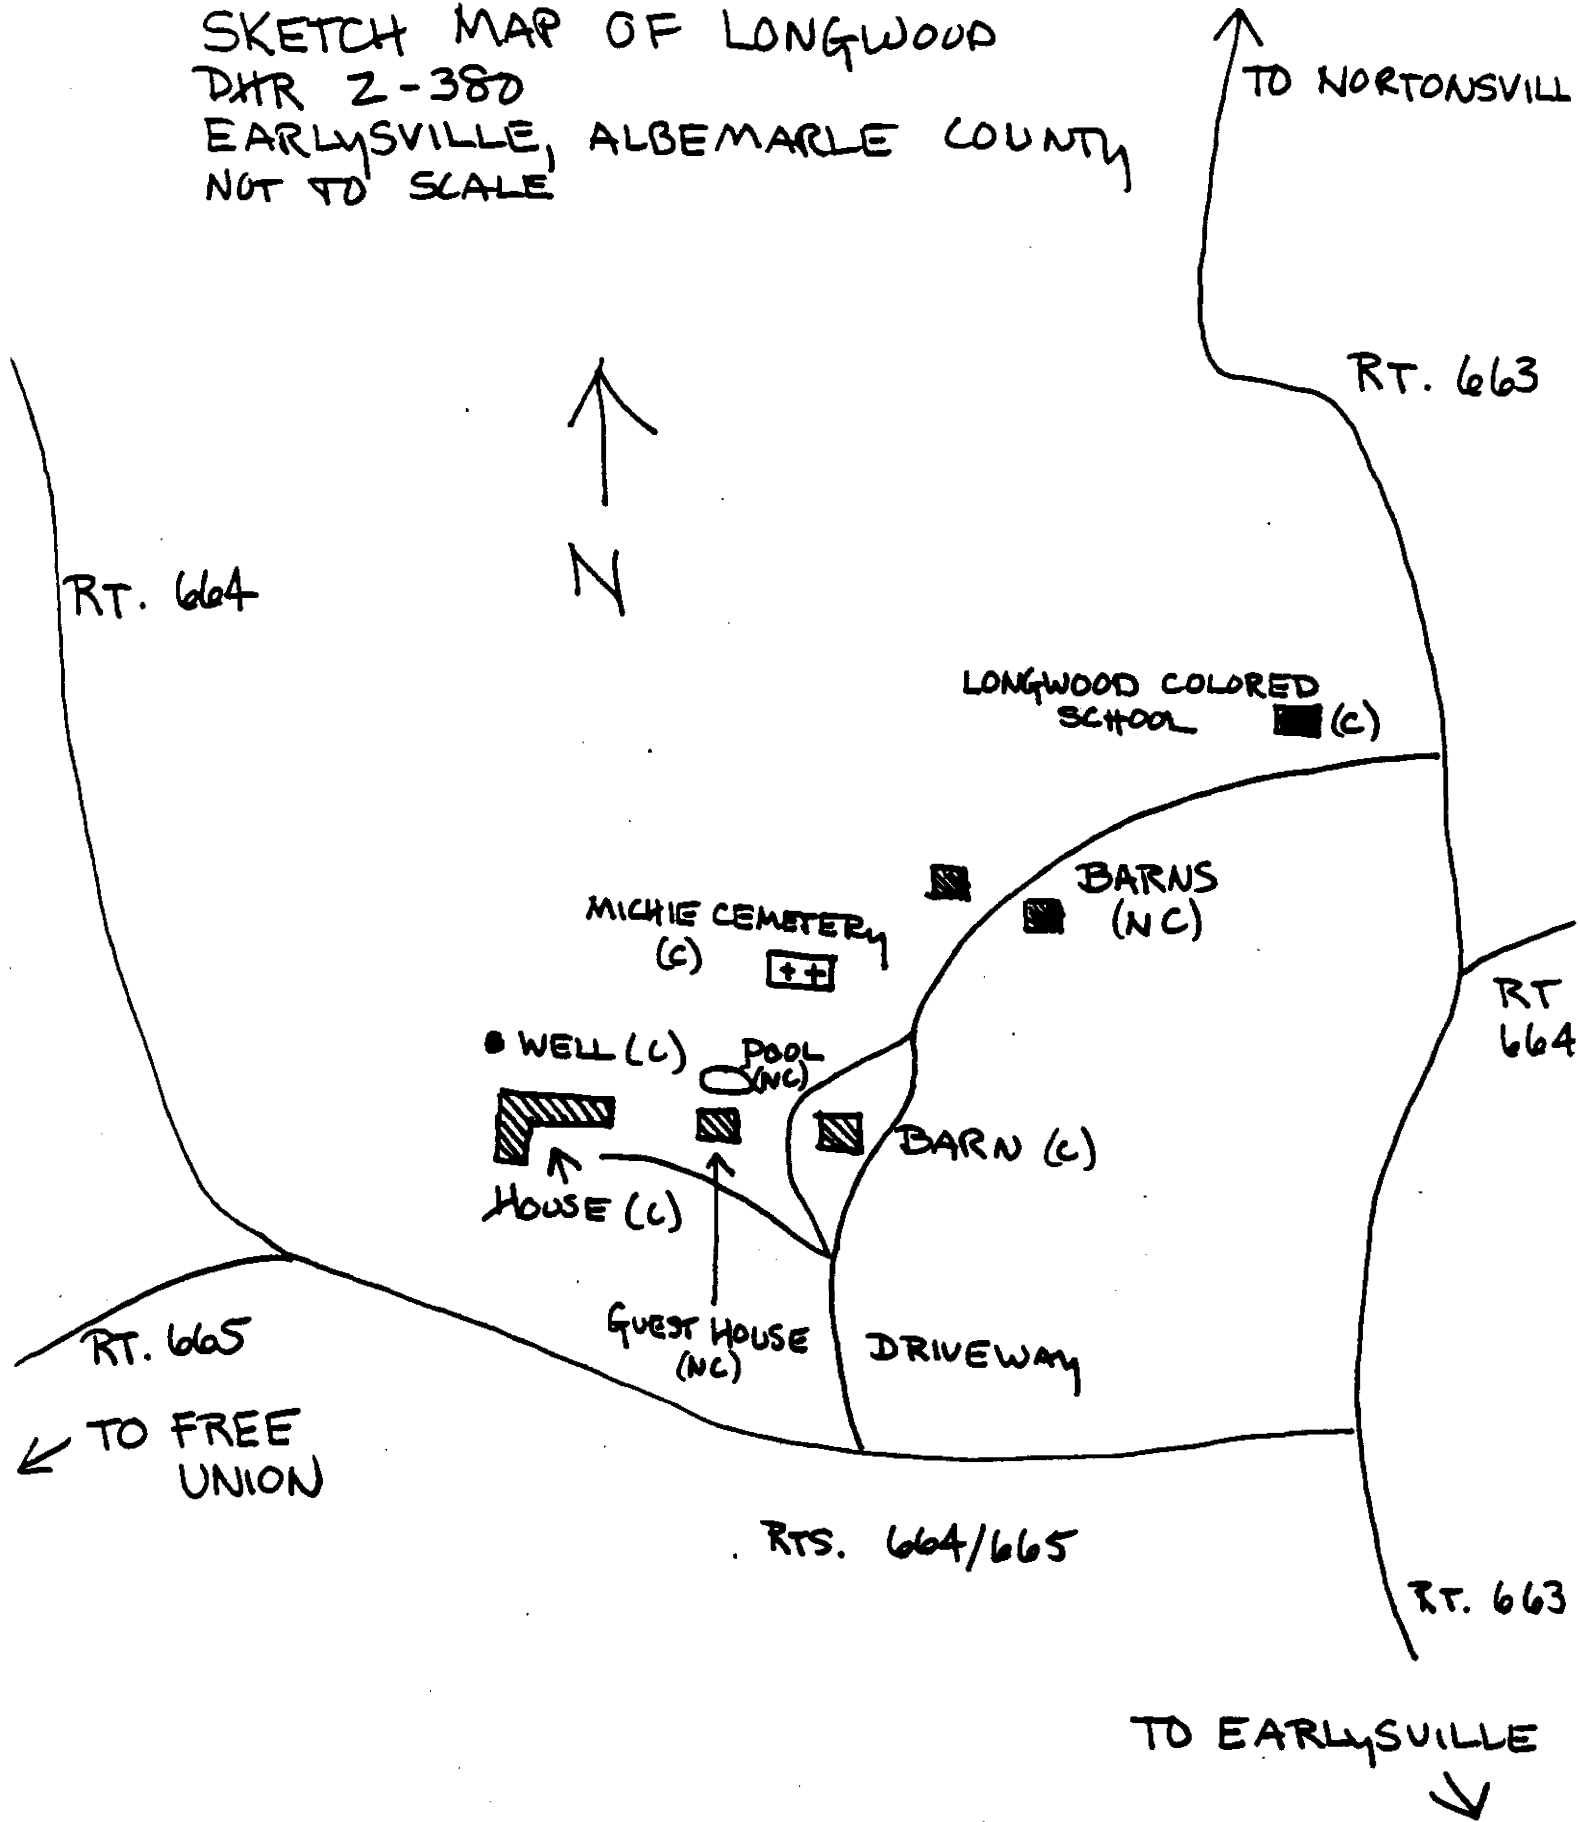 SKETCH MAP OF LONGWOOD
DHR 2-380
EARLYSVILLE, ALBEMARLE COUNTY
NOT TO SCALE
TO NORTONSVILL
RT. 663
N
RT. 664
LONGWOOD COLORED
SCHOOL (C)
BARNS
(NC)
MICHIE CEMETERY
(C)
RT
664
WELL (C)
POOL
(NC)
BARN (C)
HOUSE (C)
GUEST HOUSE
(NC)
DRIVEWAY
RT. 665
TO FREE
UNION
RTS. 664/665
RT. 663
TO EARLYSVILLE